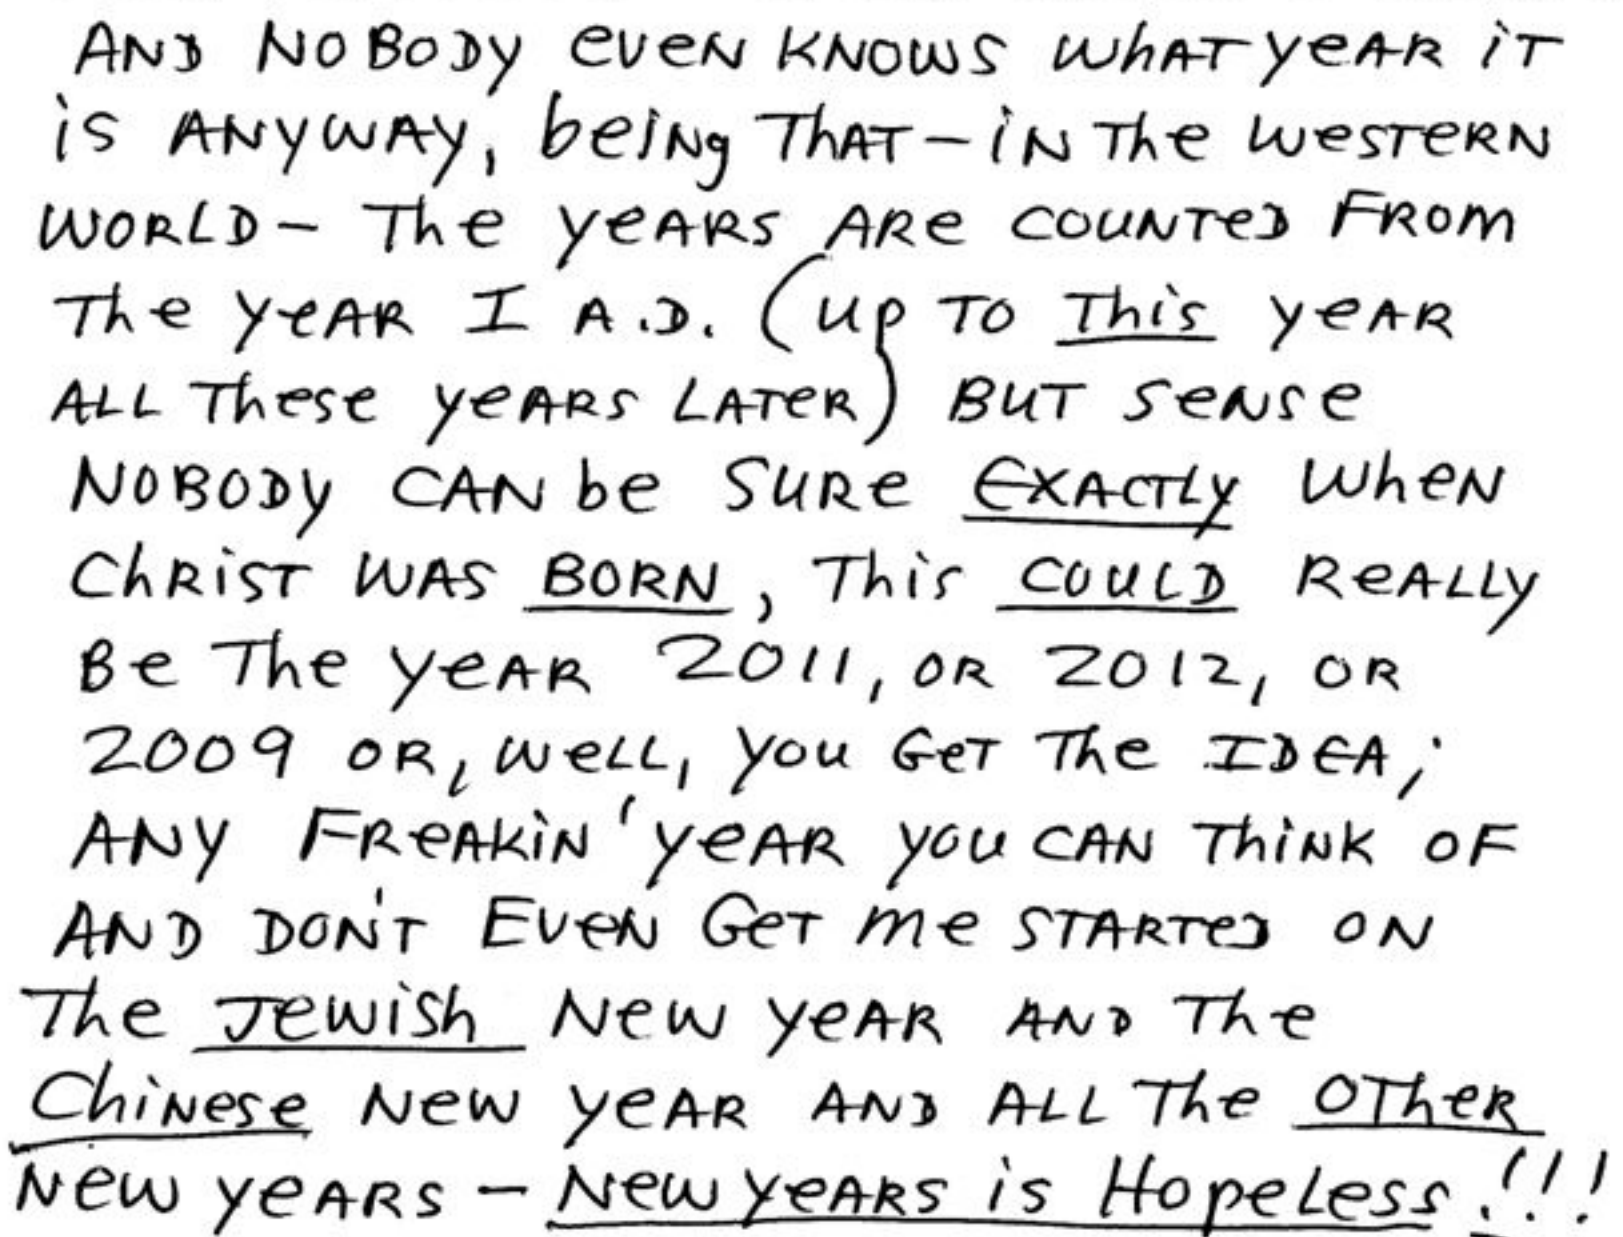 AND NOBODY eveN KNOWS WhAT yeAR iT
iS ANyWAy, beiNg ThAT – iN The WeSTeRN
WORLD – The yeARS ARe COUNTeD FROm
The yeAR I A.D. (up TO This yeAR
ALL These yeARS LATeR) BUT SeNSe
NOBODy CAN be SURe EXACTLy WheN
ChRiST WAS BORN, This COULD ReALLy
Be The yeAR 2011, OR 2012, OR
2009 OR, WeLL, you GeT The IDEA;
ANy FReAKiN' yeAR you CAN ThiNK OF
AND DON'T EveN GeT me STARTeD ON
The JewiSh New yeAR AND The
ChiNese New yeAR AND ALL The OTheR
New yeARS – New yeARS is HopeLess!!!